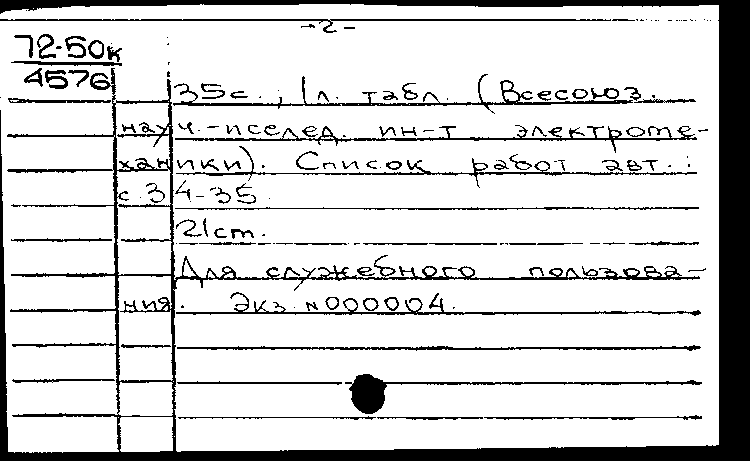 -2-
72-50к
4576
35с., 1 л. табл. (Всесоюз.
науч.-исслед. ин-т электроме-
ханики). Список работ авт.:
с. 34-35
21 cm.
Для служебного пользова-
ния. Экз. №000004.